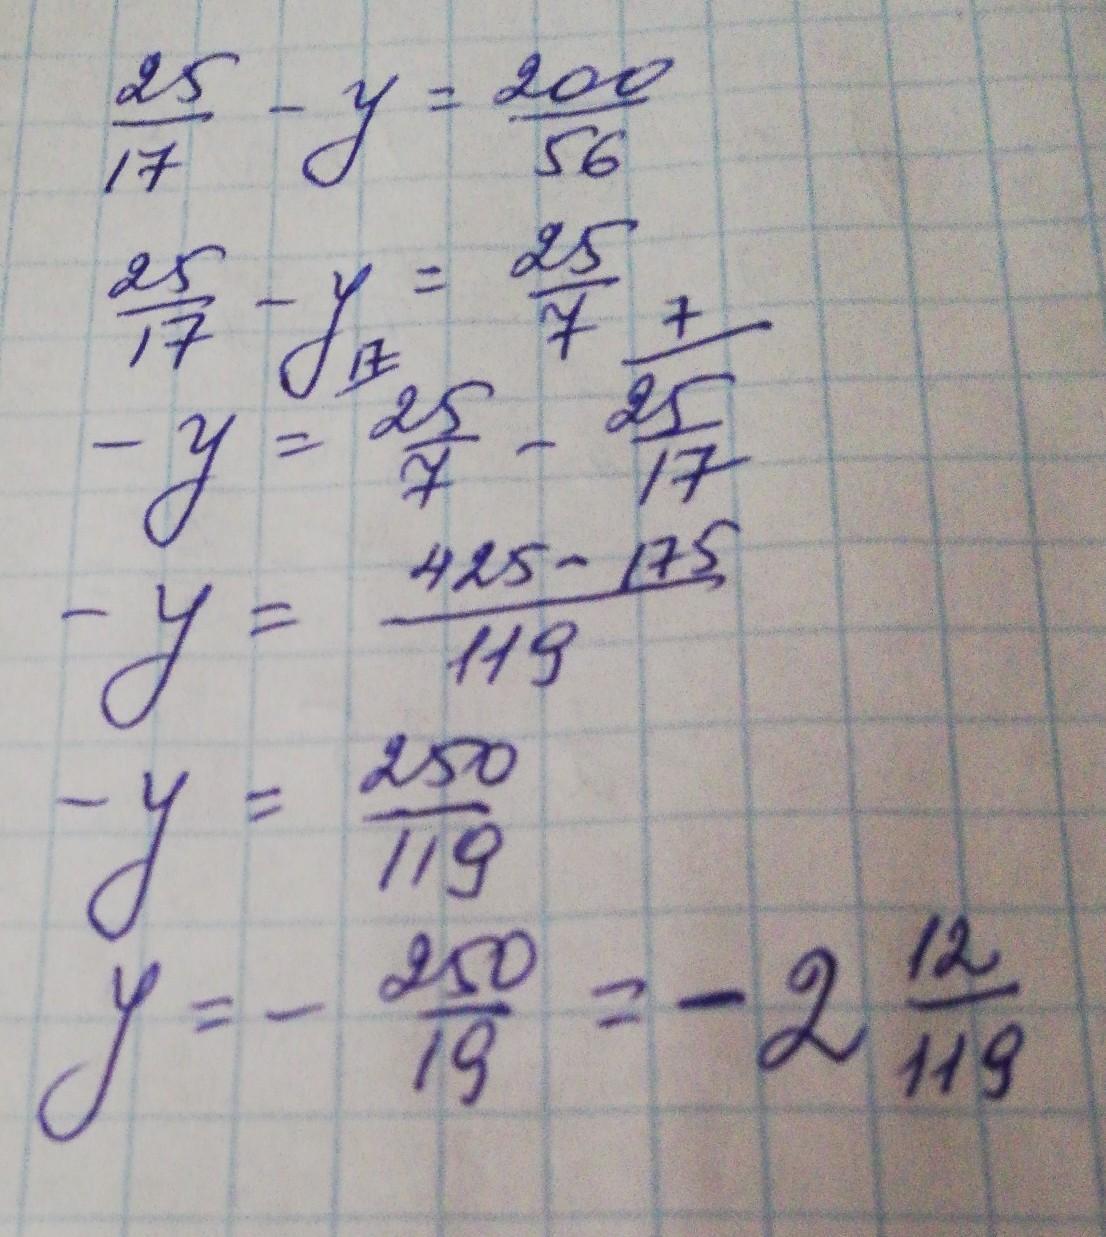 25/17 - y = 200/56
25/17 - y = 25/7
-y = 25/7 17 - 25/17 7
-y = 425 - 175/119
-y = 250/119
y = - 250/19 = -2 12/119